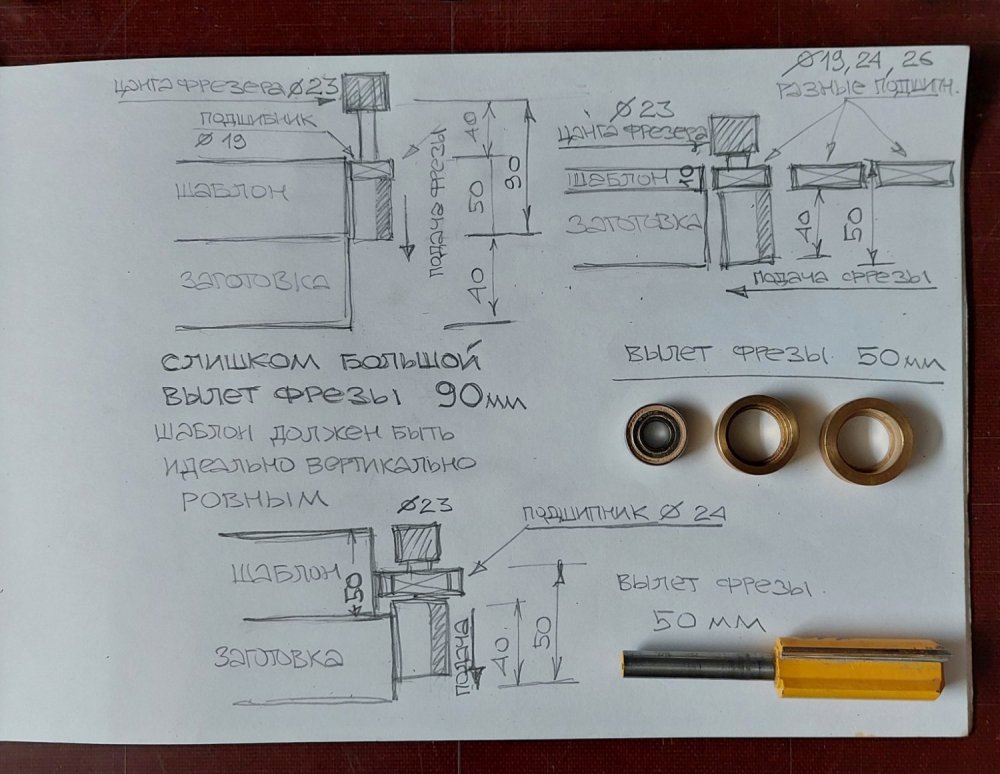 ЦАНГА ФРЕЗЕРА Ø23
ПОДШИБНИК
Ø 19
ШАБЛОН
ЗАГОТОВКА
ПОДАЧА ФРЕЗЫ
40
50
90
40
СЛИШКОМ БОЛЬШОЙ
ВЫЛЕТ ФРЕЗЫ 90мм
ШАБЛОН ДОЛЖЕН БЫТЬ
ИДЕАЛЬНО ВЕРТИКАЛЬНО
РОВНЫМ
Ø19, 24, 26
РАЗНЫЕ ПОДШИПН.
Ø23
ЦАНГА ФРЕЗЕРА
ШАБЛОН 10
ЗАГОТОВКА
40
50
ПОДАЧА ФРЕЗЫ
ВЫЛЕТ ФРЕЗЫ 50мм
Ø23
ПОДШИПНИК Ø 24
ШАБЛОН
50
ЗАГОТОВКА
ПОДАЧА
40
50
ВЫЛЕТ ФРЕЗЫ.
50мм